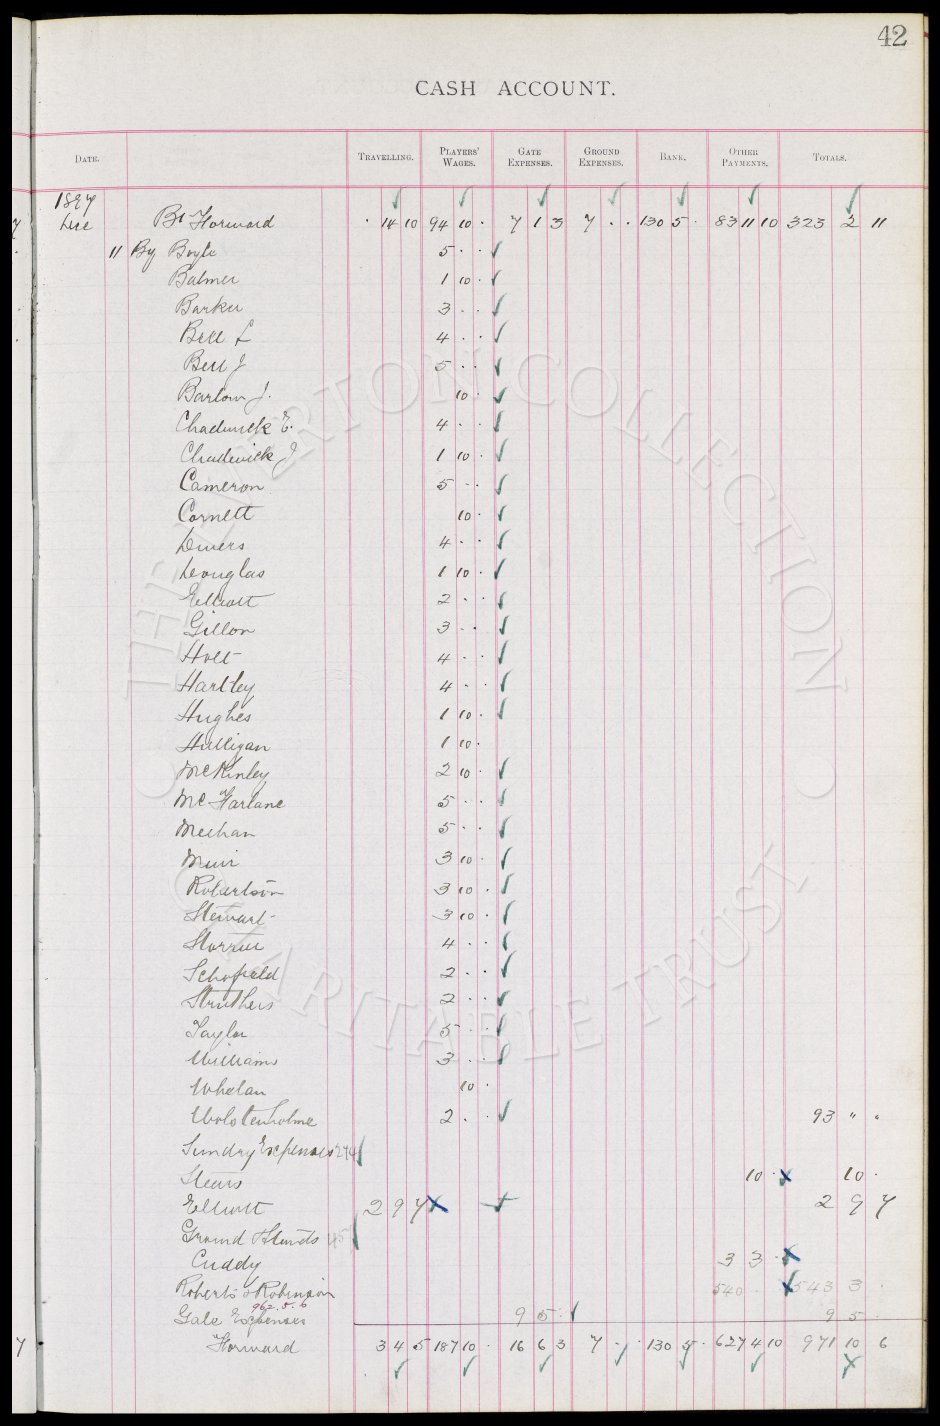 42
CASH ACCOUNT.
DATE. TRAVELLING. PLAYERS' WAGES. GATE EXPENSES. GROUND EXPENSES. BANK. OTHER PAYMENTS. TOTALS.
1897
Dec Bt Forward · 14 10 94 10 · 7 1 3 7 · · 130 5 · 83 11 10 323 2 11
11 By Boyle 5 · ·
Balmer 1 10 ·
Barker 3 · ·
Bell L 4 · ·
Bell J 5 · ·
Barlow J. 10 ·
Chadwick E. 4 · ·
Chadwick J 1 10 ·
Cameron 5 · ·
Cornett 10 ·
Divers 4 · ·
Douglas 1 10 ·
Elliott 2 · ·
Gillon 3 · ·
Holt 4 · ·
Hartley 4 · ·
Hughes 1 10 ·
Hulligan 1 10 ·
McKinley 2 10 ·
McFarlane 5 · ·
Meehan 5 · ·
Muir 3 10 ·
Robertson 3 10 ·
Stewart 3 10 ·
Storrier 4 · ·
Schofield 2 · ·
Struthers 2 · ·
Taylor 5 · ·
Williams 3 · ·
Whelan 10 ·
Wolstenholme 2 · · 93 " "
Sundry Expenses 274
Stears 10 · 10 ·
Elliott 2 9 7 2 9 7
Ground & Stands
Cuddy 3 3 ·
Roberts & Robinson 540 · · 543 3 ·
962.5.6
Gate Expenses 9 5 · 9 5 ·
Forward 3 4 5 187 10 · 16 6 3 7 · · 130 5 · 627 4 10 971 10 6
THE EVERTON COLLECTION
CHARITABLE TRUST